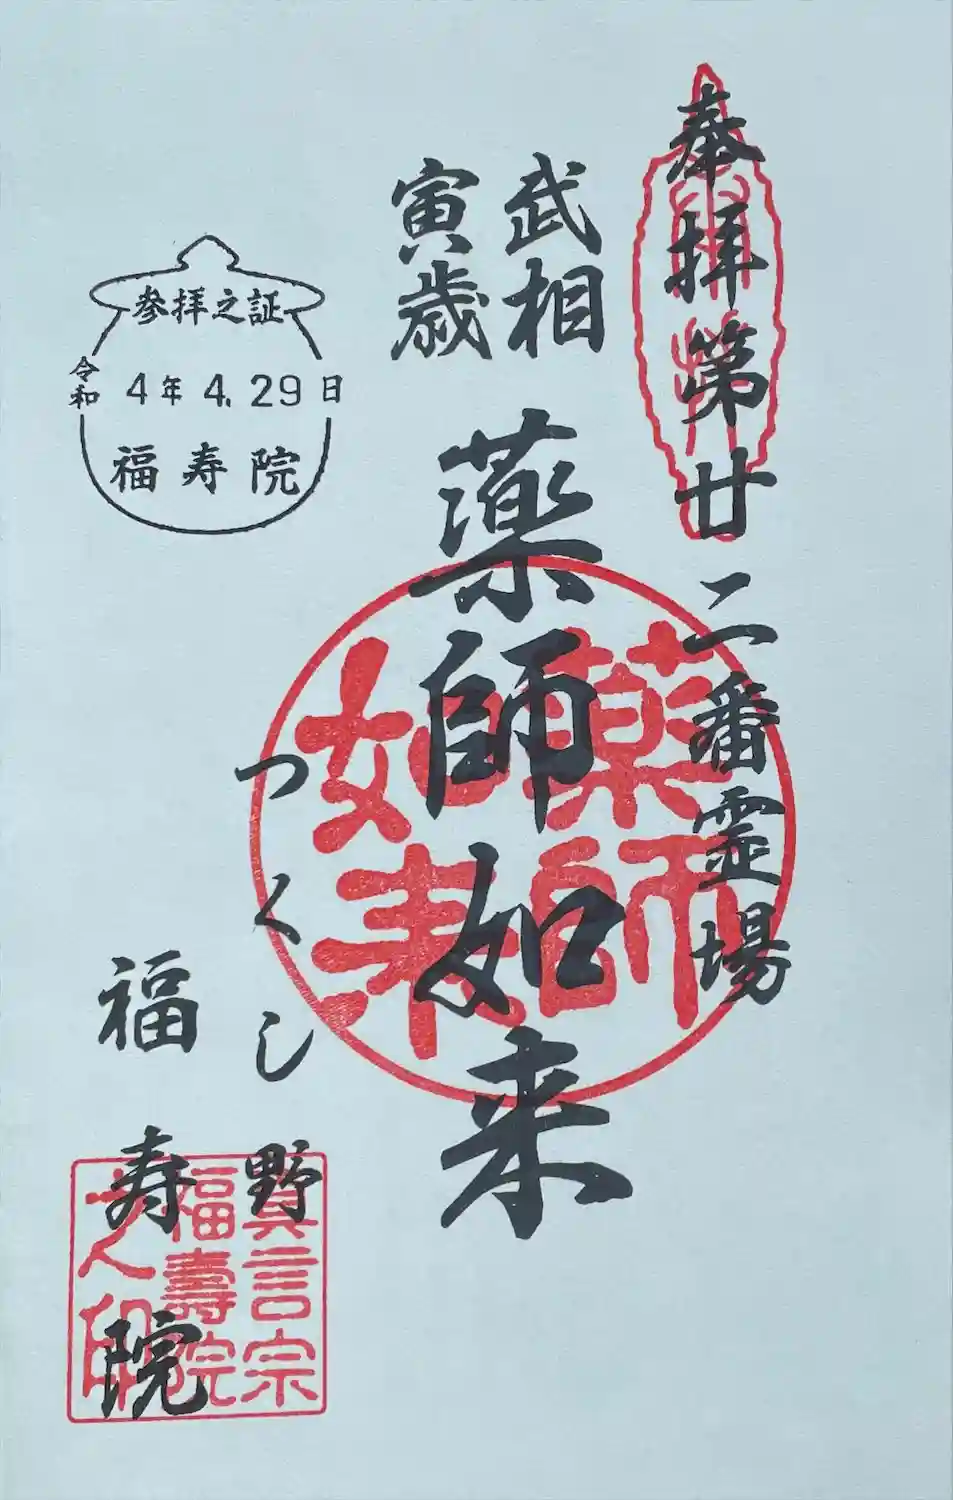 奉拝第廿二番霊場
武相
寅歳
薬師如来
つくし野
福寿院
参拝之証
令和4年4.29日
福寿院
薬師
如来
真言宗
福壽院
之印